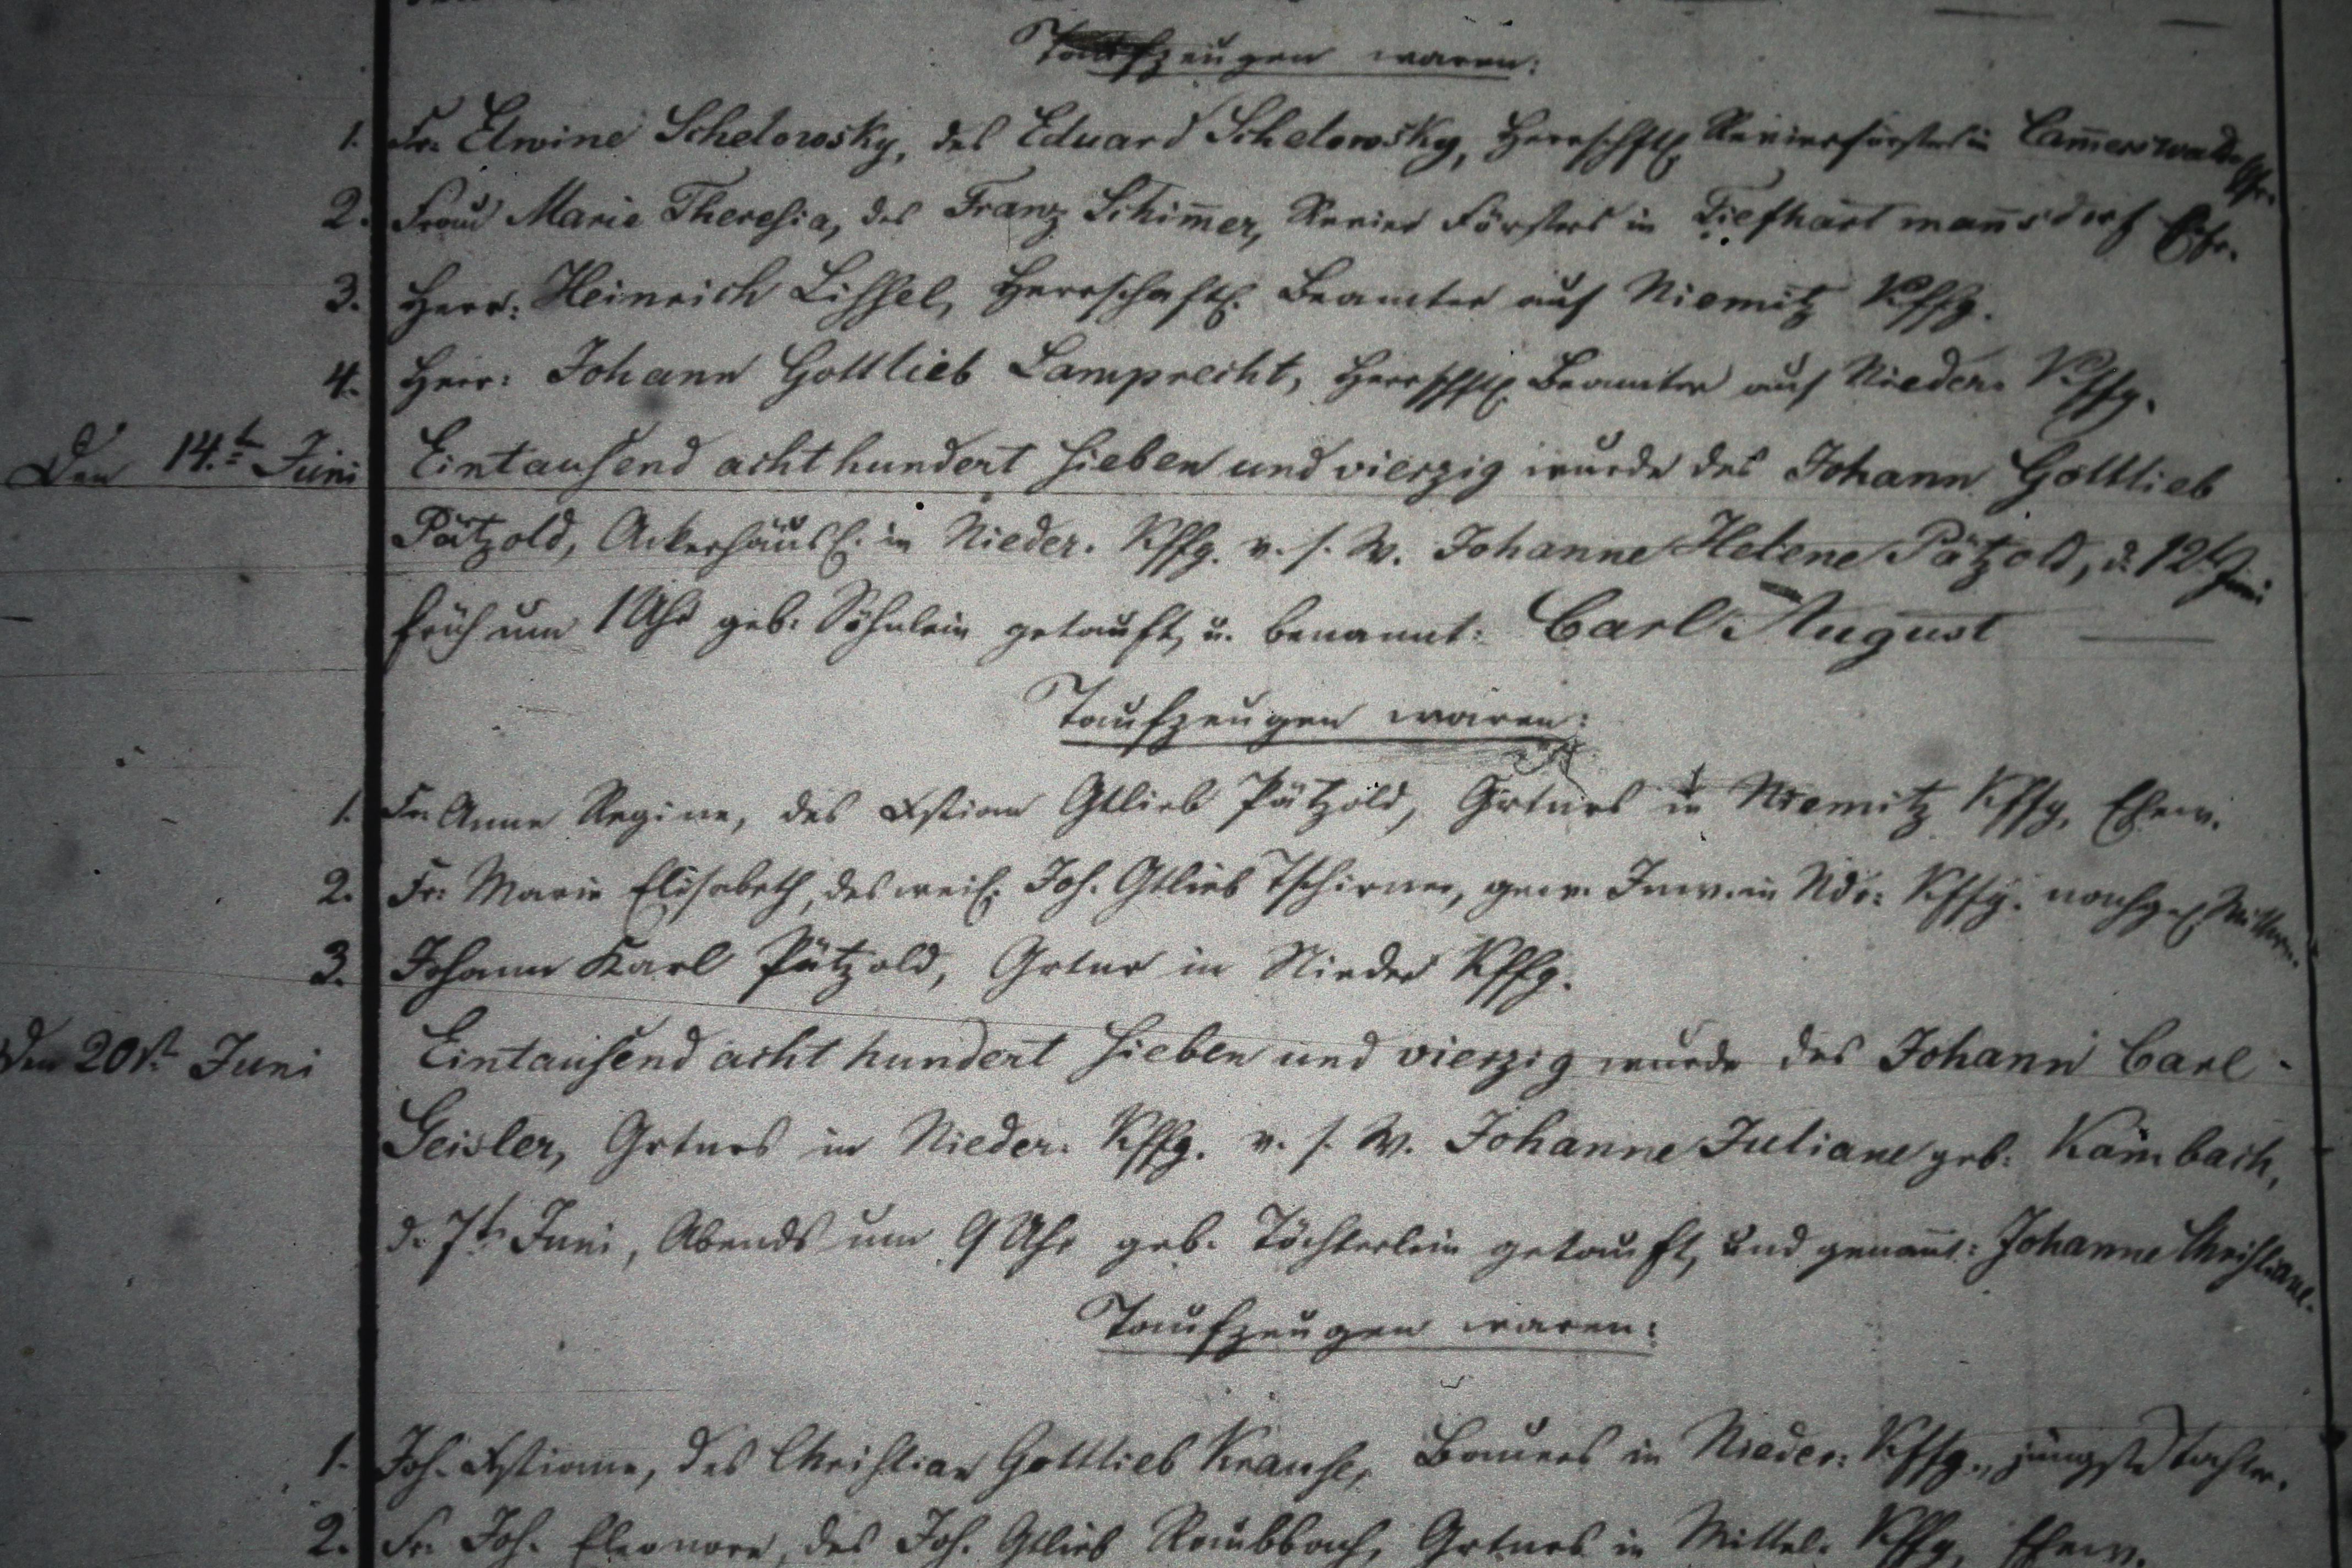 Taufzeugen waren:
1. Fr. Elwine Schelowsky, des Eduard Schelowsky, Herrschftl. Revierförsters in Cam̅erswaldau
2. Frau Marie Theresia, des Franz Schim̅er, Revier Försters in Tiefhartman̅sdorf Ehfr.
3. Herr: Heinrich Lissel, Herrschaftl. Beamter auf Niemitz Kffg.
4. Herr: Johann Gottlieb Lamprecht, Herrschftl. Beamter auf Nieder. Kffg.
Den 14.t Juni Eintausend acht hundert sieben und vierzig wurde des Johann Gottlieb
Pätzold, Ackerhäusl. in Nieder. Kffg. v. s. W. Johanne Helene Pätzold, d. 12t Juni
früh um 1 Uhr geb. Söhnlein getauft, u. benannt: Carl August
Taufzeugen waren:
1. Fr. Anne Regine, des Xstian Gtlieb Pätzold, Grtnrs in Niemitz Kffg. Ehew.
2. Fr: Marie Elisabeth, des weil. Joh. Gtlieb Tschirner, gew. Inw. in Ndr: Kffg. nachgel.
3. Johann Karl Pätzold, Grtnr in Nieder Kffg.
Den 20st Juni Eintausend acht hundert sieben und vierzig wurde des Johann Carl
Geisler, Grtnrs in Nieder. Kffg. v. s. W. Johanne Juliane geb. Kambach,
d. 7t. Juni, Abends um 9 Uhr geb. Töchterlein getauft, und genan̅t: Johanne Christiane.
Taufzeugen waren:
1. Joh. Xstiane, des Christian Gottlieb Krause, Bauers in Nieder: Kffg., jüngste Tochter.
2. Fr. Joh. Eleonore, des Joh. Gtlieb Raubbach, Grtnrs in Mittel. Kffg, Ehew.